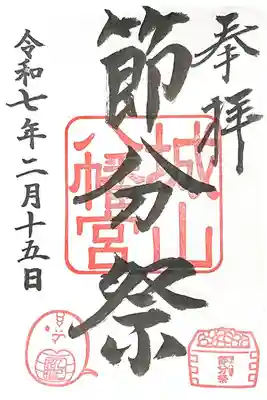 奉拝
節分祭
城山
八幡宮
令和七年二月十五日
節分祭